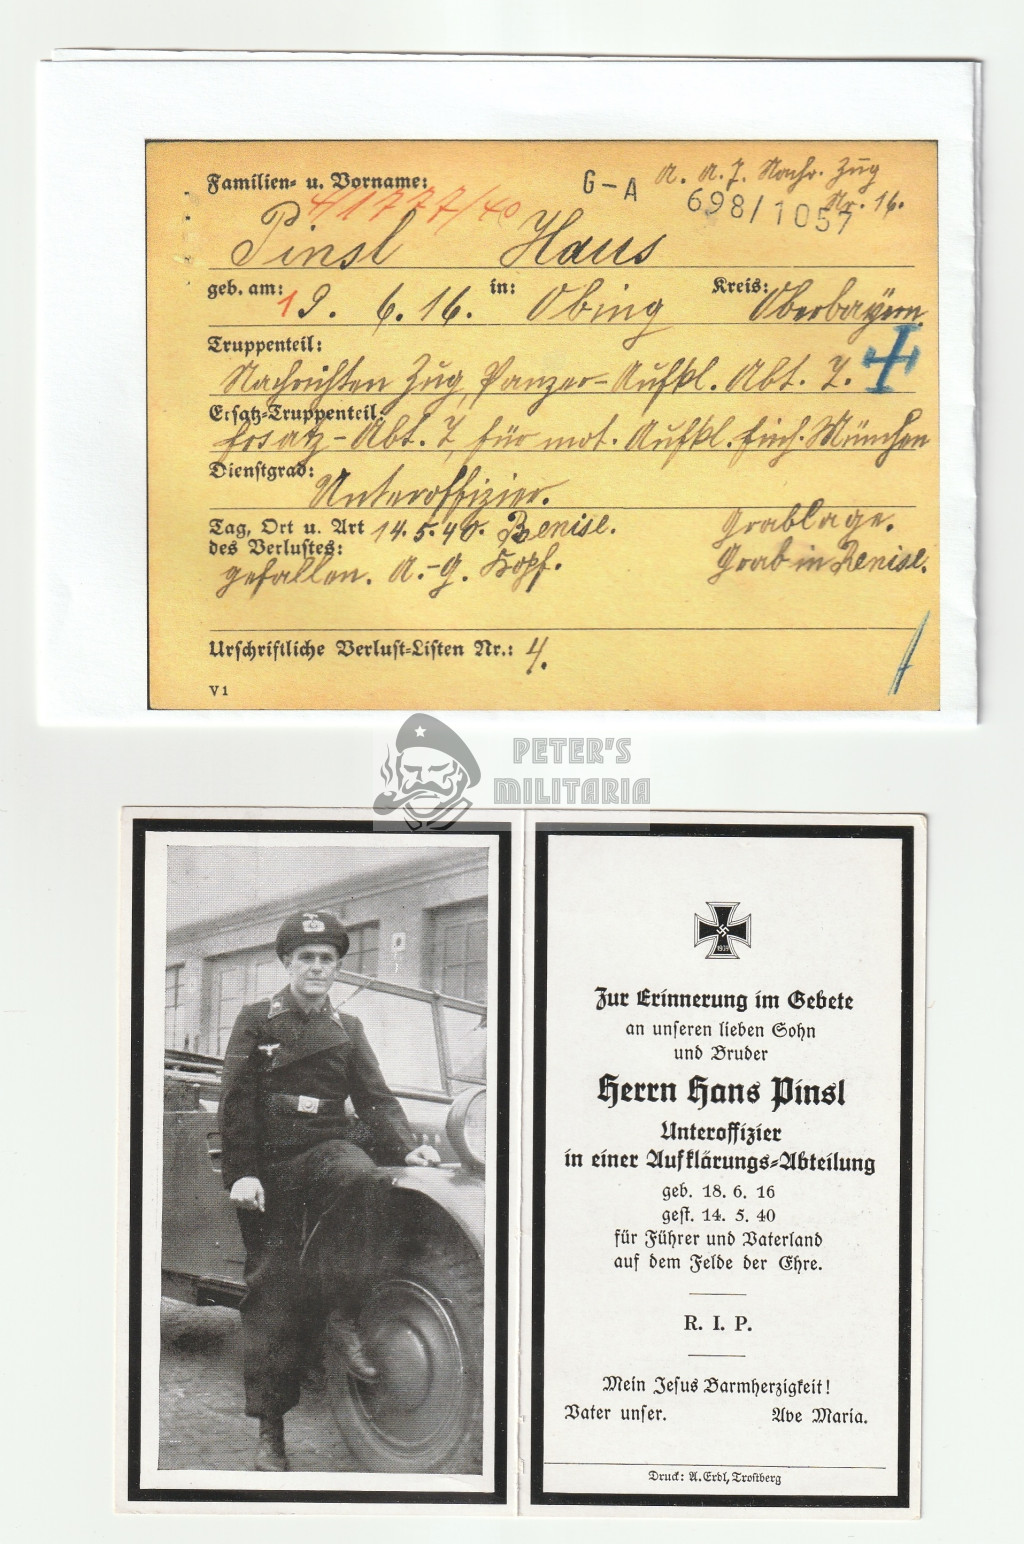 Familien- u. Vorname:
G-A
A. A. 7. Nachr. Zug
Nr. 16.
4/1777/40
698/1057
Pinsl Hans
geb. am: 19. 6. 16. in: Obing Kreis: Oberbayern
Truppenteil:
Nachrichten Zug, Panzer-Aufkl. Abt. 7.
Ersatz-Truppenteil:
Ersatz-Abt. 7, für mot. Aufkl. Einh. München
Dienstgrad:
Unteroffizier.
Tag, Ort u. Art 14.5.40. Renise. Grablage.
des Verlustes:
gefallen. A.-G. Kopf. Grab in Renise.
Urschriftliche Verlust-Listen Nr.: 4.
V 1
PETER'S
MILITARIA
1939
Zur Erinnerung im Gebete
an unseren lieben Sohn
und Bruder
Herrn Hans Pinsl
Unteroffizier
in einer Aufklärungs-Abteilung
geb. 18. 6. 16
gest. 14. 5. 40
für Führer und Vaterland
auf dem Felde der Ehre.
R. I. P.
Mein Jesus Barmherzigkeit!
Vater unser. Ave Maria.
Druck: A. Erdl, Trostberg